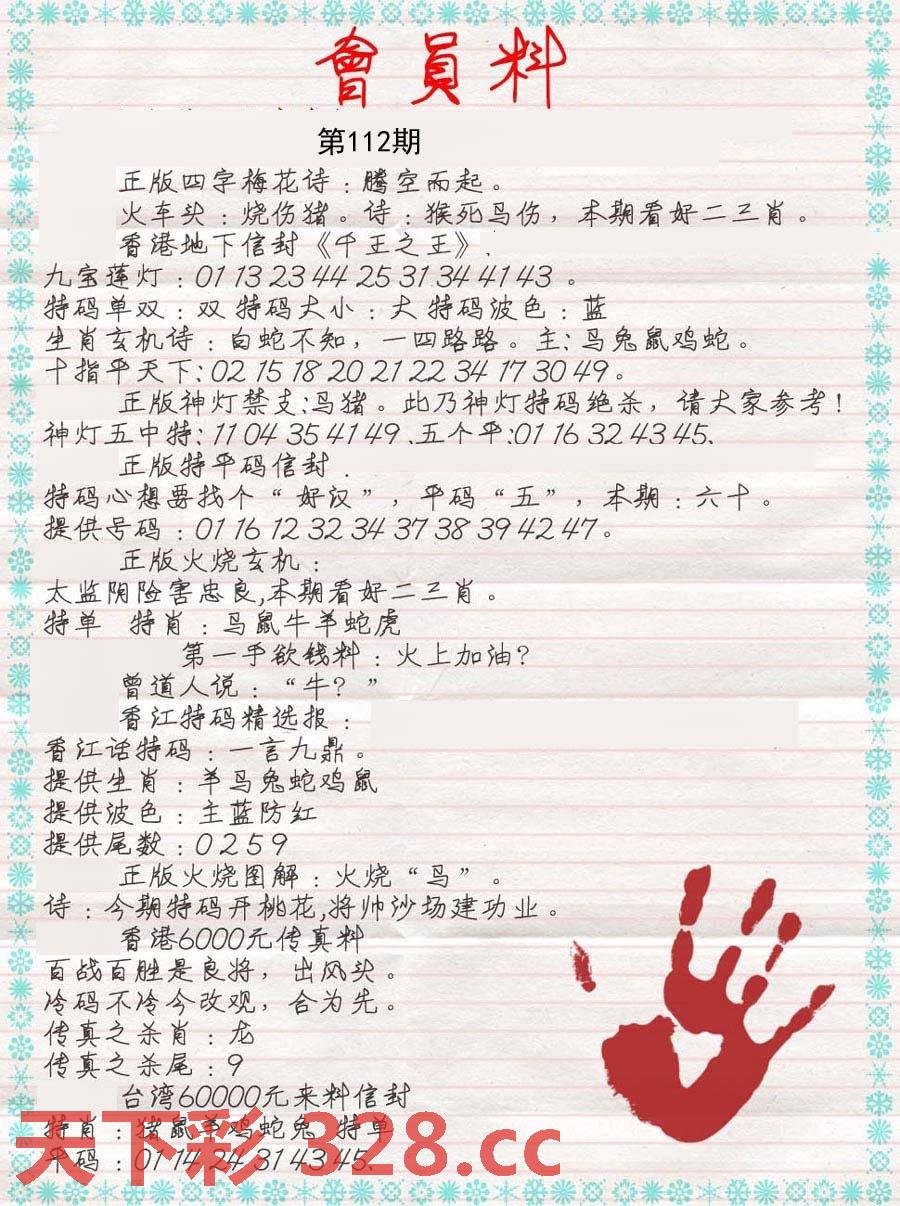 會員料
第112期
正版四字梅花诗：腾空而起。
火车头：烧伤猪。诗：猴死鸟伤，本期看好二三肖。
香港地下信封《千王之王》.
九宝莲灯：01 13 23 44 25 31 34 41 43 。
特码单双：双 特码大小：大 特码波色：蓝
生肖玄机诗：白蛇不知，一四路路。主: 鸟兔鼠鸡蛇。
十指平天下: 02 15 18 20 21 22 34 17 30 49。
正版神灯禁支:鸟猪。此乃神灯特码绝杀，请大家参考！
神灯五中特: 11 04 35 41 49 .五个平:01 16 32 43 45.
正版特平码信封 .
特码心想要找个“好汉”，平码“五”，本期：六十。
提供号码：01 16 12 32 34 37 38 39 42 47。
正版火烧玄机：
太监阴险害忠良,本期看好二三肖。
特单 特肖：鸟鼠牛羊蛇虎
第一手欲钱料：火上加油？
曾道人说：“牛？”
香江特码精选报：
香江话特码：一言九鼎。
提供生肖：羊鸟兔蛇鸡鼠
提供波色：主蓝防红
提供尾数：0 2 5 9
正版火烧图解：火烧“鸟”。
诗：今期特码开桃花,将帅沙场建功业。
香港6000元传真料
百战百胜是良将，出风头。
冷码不冷今改观，合为先。
传真之杀肖：龙
传真之杀尾：9
台湾60000元来料信封
特肖：猪鼠羊鸡蛇兔 特单
平码：01 14 24 31 43 45.
天下彩 328.cc